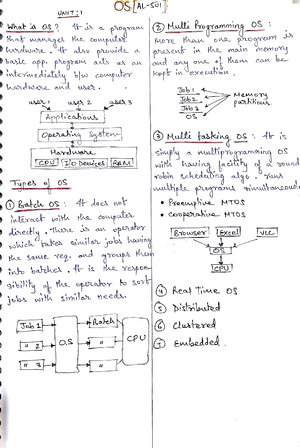 OS [AL-501]
UNIT: 1
What is OS? It is a program
that manages the computer
hardware. It also provide a
basic app. program acts as an
intermediately b/w computer
hardware and user.
user 1 user 2 user 3
Applications
Operating System
Hardware
CPU I/O Devices RAM
Types of OS
① Batch OS : It does not
interact with the computer
directly. There is an operator
which takes similar jobs having
the same req. and groups them
into batches. It is the respon-
sibility of the operator to sort
jobs with similar needs.
Job 1
" 2
" 3
O.S
Batch
"
"
CPU
② Multi Programming OS :
More than one program is
present in the main memory
and any one of them can be
kept in execution.
Job 1
Job 2
Job 3
OS
Memory
partitions
③ Multi tasking OS : It is
simply a multiprogramming OS
with having facility of a round
robin scheduling algo. runs
multiple programs simultaneous
• Preemptive MTOS
• Cooperative MTOS
Browser Excel VLC
OS
CPU
④ Real Time OS
⑤ Distributed
⑥ Clustered
⑦ Embedded.